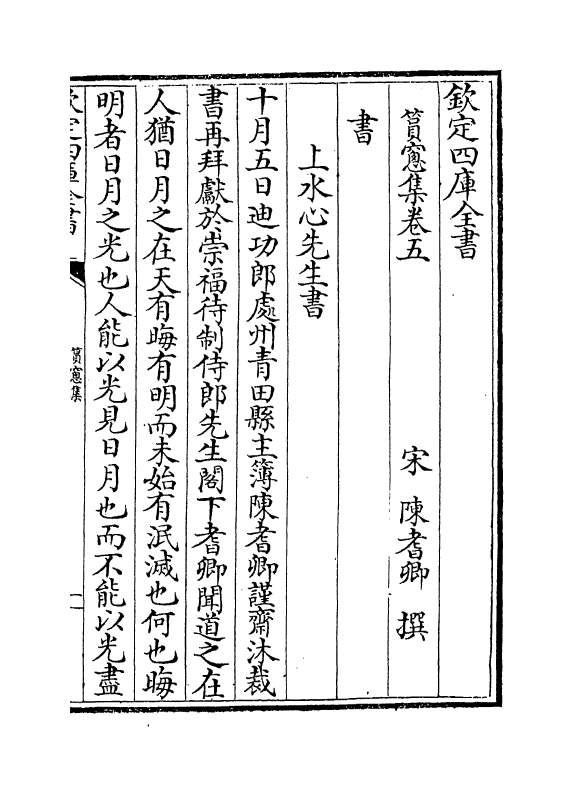 欽定四庫全書
篔窻集卷五
宋 陳耆卿 撰
書
上水心先生書
十月五日迪功郎處州青田縣主簿陳耆卿謹齋沐裁
書再拜獻於崇福待制侍郎先生閣下耆卿聞道之在
人猶日月之在天有晦有明而未始有泯滅也何也晦
明者日月之光也人能以光見日月也而不能以光盡
欽定四庫全書
篔窻集
一